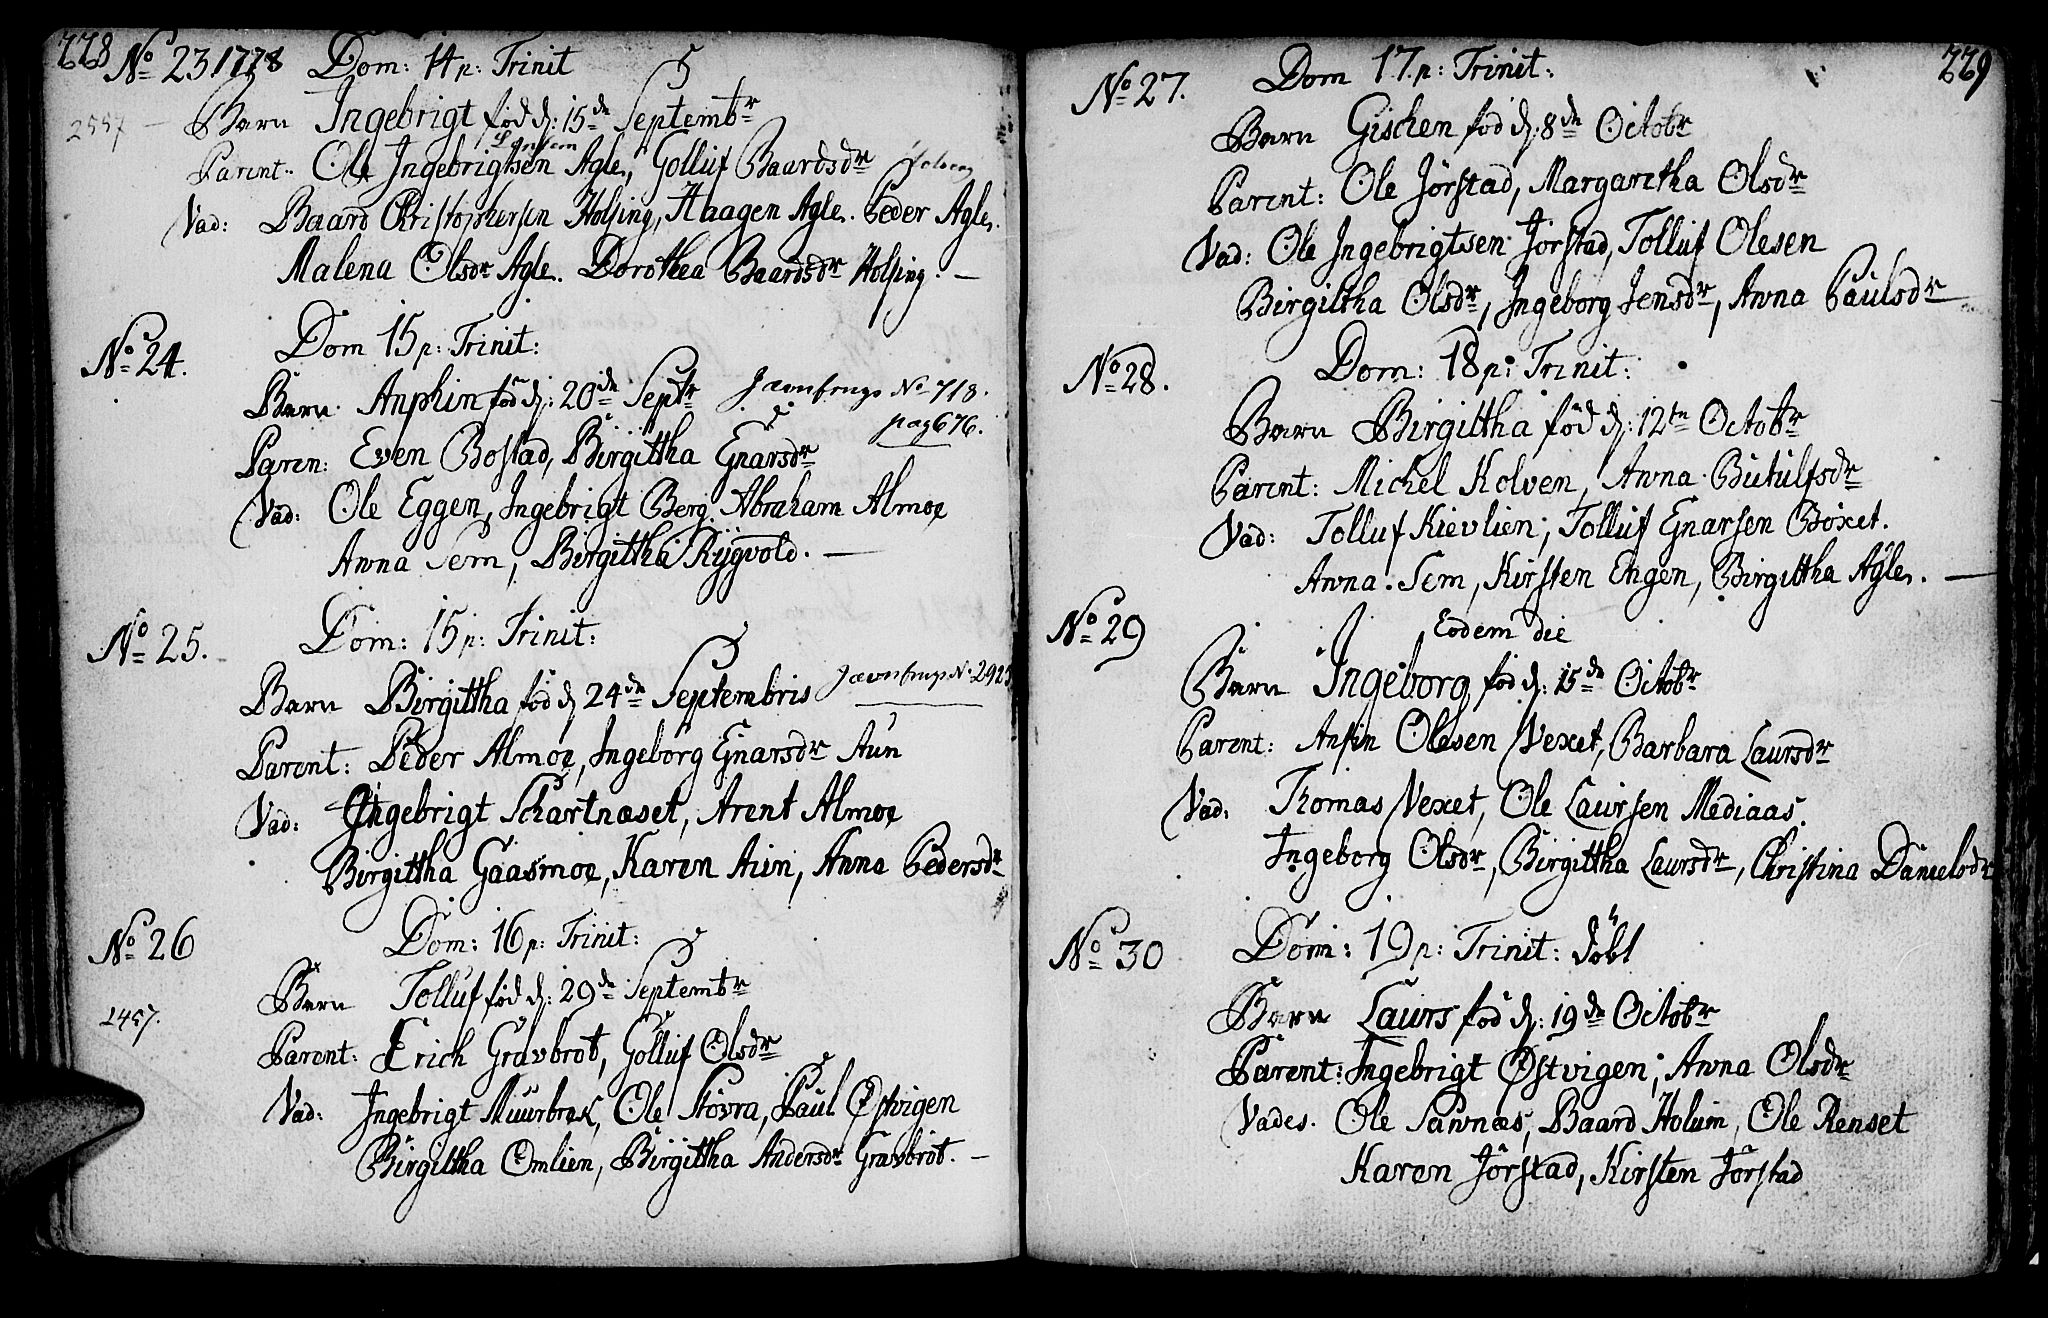 228
No 23 1778 Dom: 14 p: Trinit
2557 — Barn Ingebrigt fød d: 15de Septembr
Parent: Ole Ingebrigtsen Agle, Golluf Baardsdr
Vad: Baard Christophersen Holsing, Haagen Agle. Peder Agle.
Malena Olsdr Agle. Dorothea Baardsdr Holsing. —
No 24. Dom 15 p: Trinit:
Barn. Anphin fød d: 20de Septr Jævnfrngs No 718.
pag 676.
Paren: Even Bostad, Birgittha Enarsdr
Vad: Ole Eggen, Ingebrigt Berg, Abraham Almoe
Anna Sem, Birgittha Rygvold. —
No 25. Dom: 15 p: Trinit:
Barn Birgittha fød d 24de Septembris
Parent: Peder Almoe, Ingeborg Enarsdr Aun
Vad: Ingebrigt Schartnæset, Arent Almoe
Birgittha Gaasmoe, Karen Aun, Anna Pedersdr
No 26 Dom: 16 p: Trinit:
Barn Tolluf fød d: 29de Septembr
2457.
Parent: Erich Gravbrøt, Golluf Olsdr
Vad: Ingebrigt Muurbræk, Ole Støvra, Paul Østvigen
Birgittha Omlien, Birgittha Andersdr Gravbrøt. —
229
No 27. Dom 17. p: Trinit:
Barn Gischen fød d: 8de Octobr
Parent: Ole Jørstad, Margaretha Olsdr
Vad: Ole Ingebrigtsen Jørstad, Tolluf Olesen
Birgittha Olsdr, Ingeborg Jensdr, Anna Paulsdr
No 28. Dom: 18 p: Trinit:
Barn Birgittha fød d: 12te Octobr
Parent: Michel Kolven, Anna Butulfsdr
Vad: Tolluf Kievlien, Tolluf Enarsen Bøxet.
Anna Sem, Kirsten Engen, Birgittha Agle. —
No 29 Eodem die
Barn Ingeborg fød d: 15de Octobr
Parent: Anfin Olesen Vexet, Barbara Laursdr
Vad: Thomas Vexet, Ole Laursen Mediaas.
Ingeborg Olsdr, Birgittha Laursdr, Christina Danielsdr
No 30 Dom: 19 p: Trinit: døbt
Barn Laurs fød d: 19de Octobr
Parent: Ingebrigt Østvigen, Anna Olsdr
Vades. Ole Savnæs, Baard Holum, Ole Renset
Karen Jørstad, Kirsten Jørstad